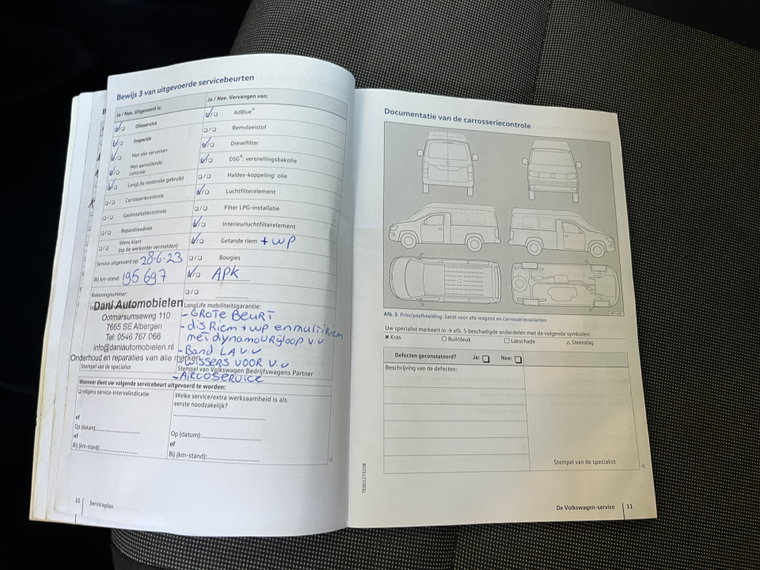 Bewijs 3 van uitgevoerde servicebeurten
Ja / Nee. Uitgevoerd is:
Olieservice
Inspectie
Met olie verversen
Met aanvullende controle
LongLife motorolie gebruikt
Carrosseriecontrole
Gasinstallatiecontrole
Reparatieadvies
Wens klant
(op de werkorder vermelden)
Service uitgevoerd op: 28-6-23
Bij km-stand: 195697
Rekeningnummer:
Ja / Nee. Vervangen van:
AdBlue®
Remvloeistof
Dieselfilter
DSG®: versnellingsbakolie
Haldex-koppeling: olie
Luchtfilterelement
Filter LPG-installatie
Interieurluchtfilterelement
Getande riem + WP
Bougies
APK
Dani Automobielen
Ootmarsumseweg 110
7665 SE Albergen
Tel: 0546 767 066
info@daniautomobielen.nl
Onderhoud en reparaties van alle merken
Stempel van de specialist
LongLife mobiliteitsgarantie:
- GROTE BEURT
- dis Riem + wp en multiRiem
met dynamo vrijloop v.v
- Band LA v.v
- WISSERS VOOR v.v
- AIRCOSERVICE
Stempel van Volkswagen Bedrijfswagens Partner
Wanneer dient uw volgende servicebeurt uitgevoerd te worden:
volgens service-intervalindicatie
of
Op (datum):
of
Bij (km-stand):
Welke service/extra werkzaamheid is als eerste noodzakelijk?
Op (datum):
of
Bij (km-stand):
10 Serviceplan
Documentatie van de carrosseriecontrole
Afb. 5 Principeafbeelding: Geldt voor alle wagens en carrosserievarianten
Uw specialist markeert in → afb. 5 beschadigde onderdelen met de volgende symbolen:
✖ Kras
O Buil/deuk
□ Lakschade
△ Steenslag
Defecten geconstateerd? Ja: Nee:
Beschrijving van de defecten:
Stempel van de specialist
De Volkswagen-service 11